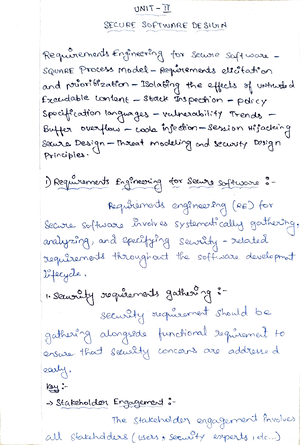 UNIT - II
SECURE SOFTWARE DESIGN
Requirements Engineering for Secure Software -
SQUARE Process Model - Requirements elicitation
and prioritization - Isolating the effects of untrusted
Executable Content - Stack Inspection - Policy
Specification languages - Vulnerability Trends -
Buffer overflow - Code injection - Session Hijacking
Secure Design - Threat modeling and Security Design
Principles.
1) Requirements Engineering for Secure software :-
Requirements engineering (RE) for
Secure software involves systematically gathering,
analyzing, and specifying security - related
requirements throughout the software development
lifecycle.
1. Security requirements gathering :-
Security requirement should be
gathering alongside functional requirement to
ensure that security concerns are addressed
early.
Key :-
→ Stakeholder Engagement :-
The stakeholder engagement involves
all stakeholders (users, security experts, etc...)